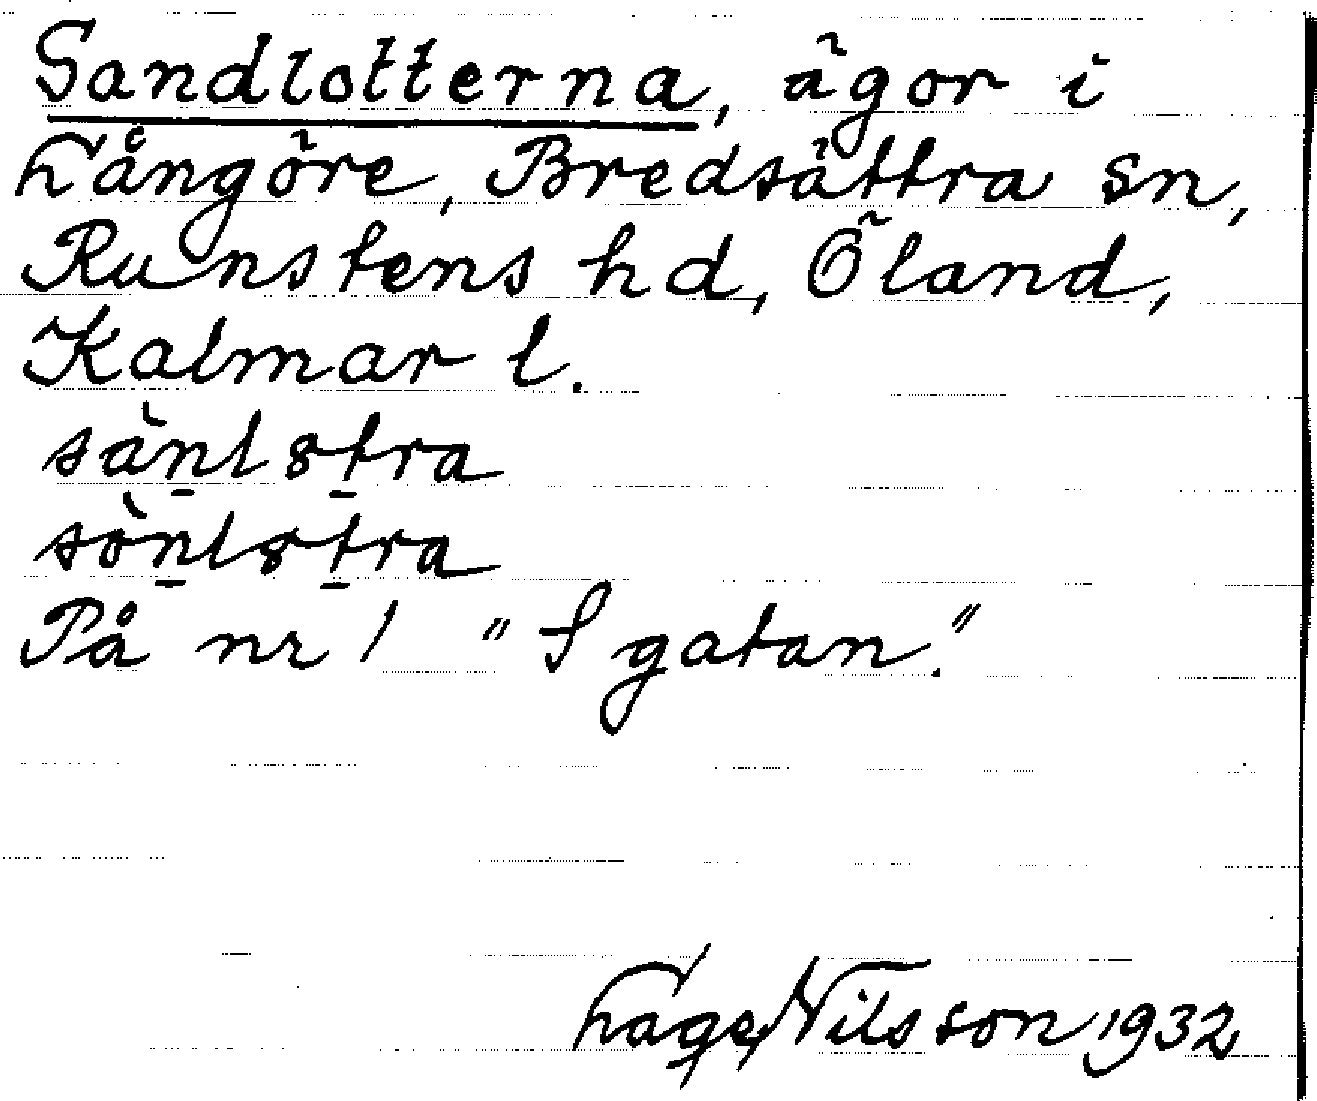 Sandlotterna, ägor i
Långöre, Bredsättra sn,
Runstens hd, Öland,
Kalmar l.
sàn̲lst̲ra
sòn̲lst̲ra
På nr 1 "S gatan."
Lage Nilsson 1932